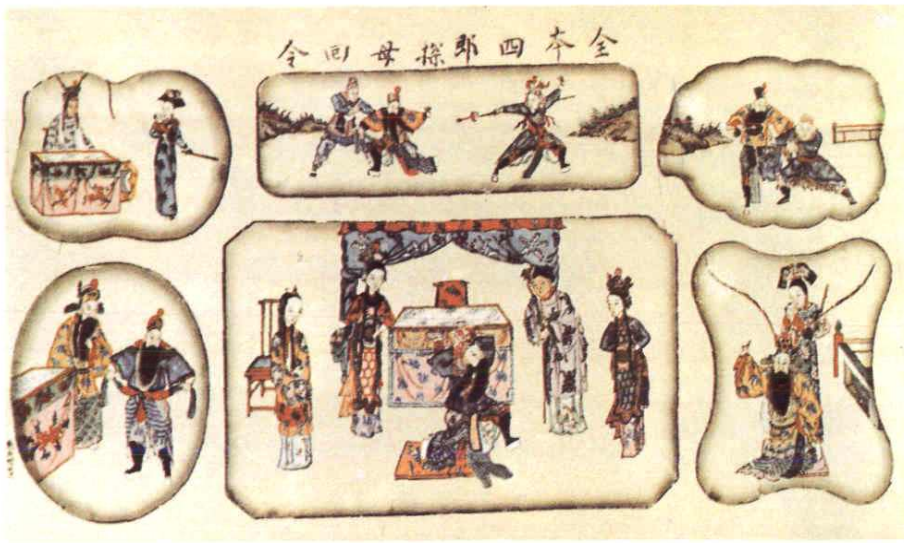 全本四郎探母回令